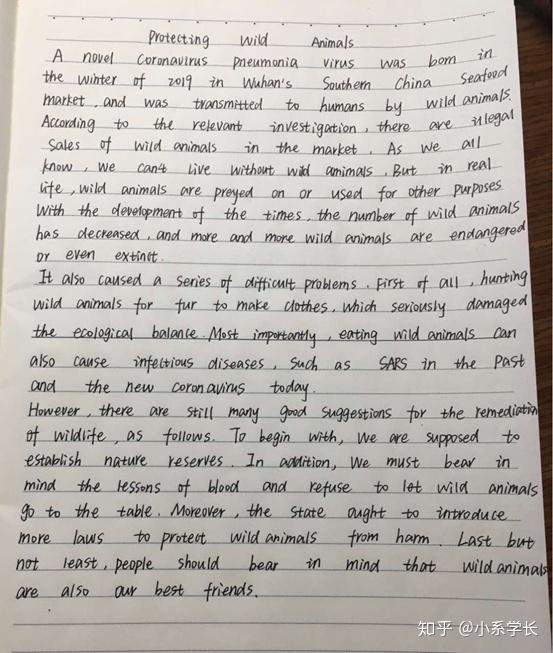 Protecting Wild Animals
A novel coronavirus pneumonia virus was born in
the winter of 2019 in Wuhan's Southern China Seafood
market, and was transmitted to humans by wild animals.
According to the relevant investigation, there are illegal
sales of wild animals in the market. As we all
know, we can't live without wild animals. But in real
life, wild animals are preyed on or used for other purposes
With the development of the times, the number of wild animals
has decreased, and more and more wild animals are endangered
or even extinct.
It also caused a series of difficult problems. First of all, hunting
wild animals for fur to make clothes, which seriously damaged
the ecological balance. Most importantly, eating wild animals can
also cause infeltious diseases, such as SARS in the past
and the new coronavirus today.
However, there are still many good suggestions for the remediation
of wildlife, as follows. To begin with, we are supposed to
establish nature reserves. In addition, we must bear in
mind the lessons of blood and refuse to let wild animals
go to the table. Moreover, the state ought to introduce
more laws to protect wild animals from harm. Last but
not least, people should bear in mind that wild animals
are also our best friends.
知乎 @小系学长